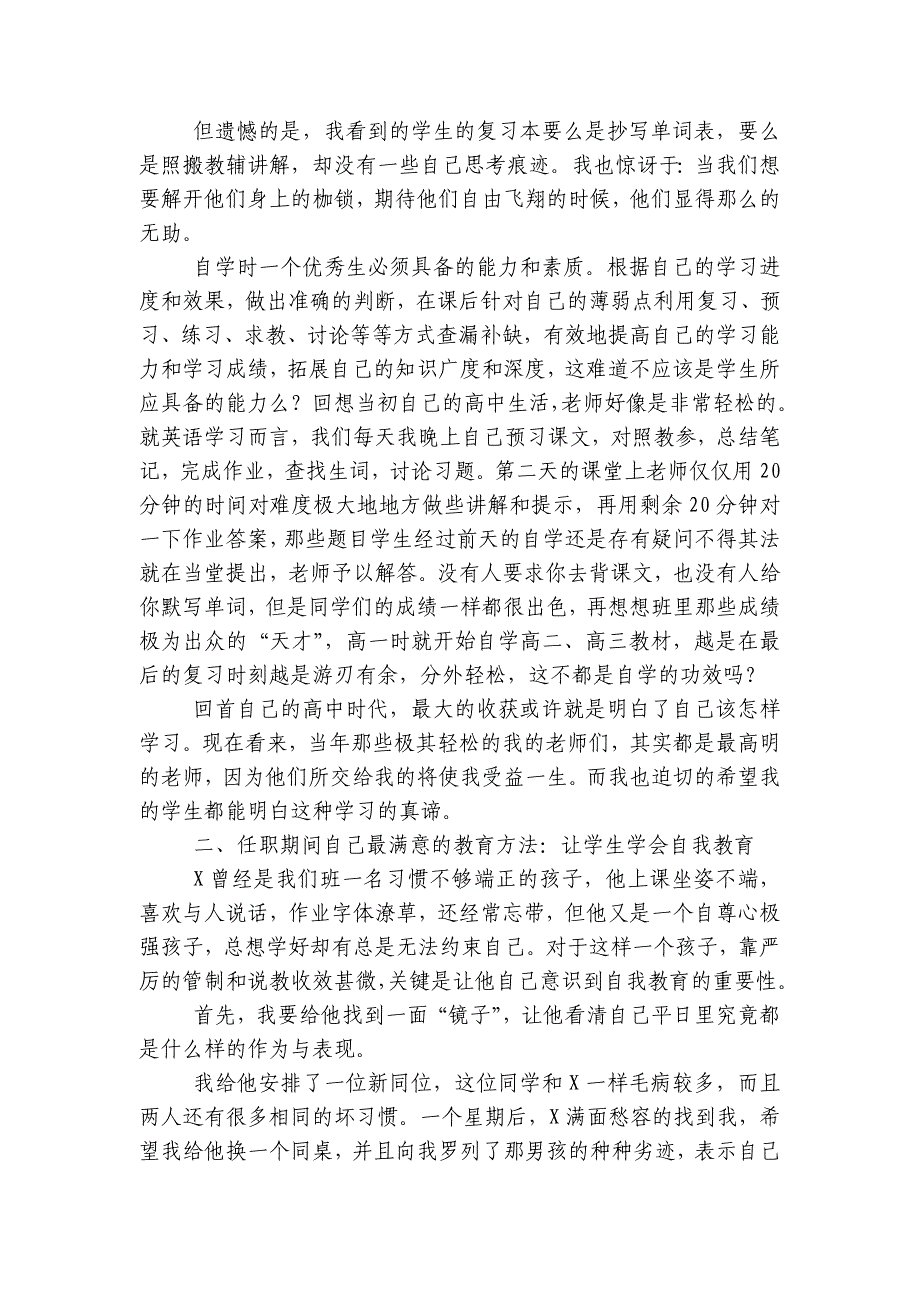 但遗憾的是，我看到的学生的复习本要么是抄写单词表，要么
是照搬教辅讲解，却没有一些自己思考痕迹。我也惊讶于：当我们想
要解开他们身上的枷锁，期待他们自由飞翔的时候，他们显得那么的
无助。
自学时一个优秀生必须具备的能力和素质。根据自己的学习进
度和效果，做出准确的判断，在课后针对自己的薄弱点利用复习、预
习、练习、求教、讨论等等方式查漏补缺，有效地提高自己的学习能
力和学习成绩，拓展自己的知识广度和深度，这难道不应该是学生所
应具备的能力么？回想当初自己的高中生活，老师好像是非常轻松的。
就英语学习而言，我们每天我晚上自己预习课文，对照教参，总结笔
记，完成作业，查找生词，讨论习题。第二天的课堂上老师仅仅用 20
分钟的时间对难度极大地地方做些讲解和提示，再用剩余 20 分钟对
一下作业答案，那些题目学生经过前天的自学还是存有疑问不得其法
就在当堂提出，老师予以解答。没有人要求你去背课文，也没有人给
你默写单词，但是同学们的成绩一样都很出色，再想想班里那些成绩
极为出众的“天才”，高一时就开始自学高二、高三教材，越是在最
后的复习时刻越是游刃有余，分外轻松，这不都是自学的功效吗？
回首自己的高中时代，最大的收获或许就是明白了自己该怎样
学习。现在看来，当年那些极其轻松的我的老师们，其实都是最高明
的老师，因为他们所交给我的将使我受益一生。而我也迫切的希望我
的学生都能明白这种学习的真谛。
二、任职期间自己最满意的教育方法：让学生学会自我教育
X 曾经是我们班一名习惯不够端正的孩子，他上课坐姿不端，
喜欢与人说话，作业字体潦草，还经常忘带，但他又是一个自尊心极
强孩子，总想学好却有总是无法约束自己。对于这样一个孩子，靠严
厉的管制和说教收效甚微，关键是让他自己意识到自我教育的重要性。
首先，我要给他找到一面“镜子”，让他看清自己平日里究竟都
是什么样的作为与表现。
我给他安排了一位新同位，这位同学和 X 一样毛病较多，而且
两人还有很多相同的坏习惯。一个星期后，X 满面愁容的找到我，希
望我给他换一个同桌，并且向我罗列了那男孩的种种劣迹，表示自己